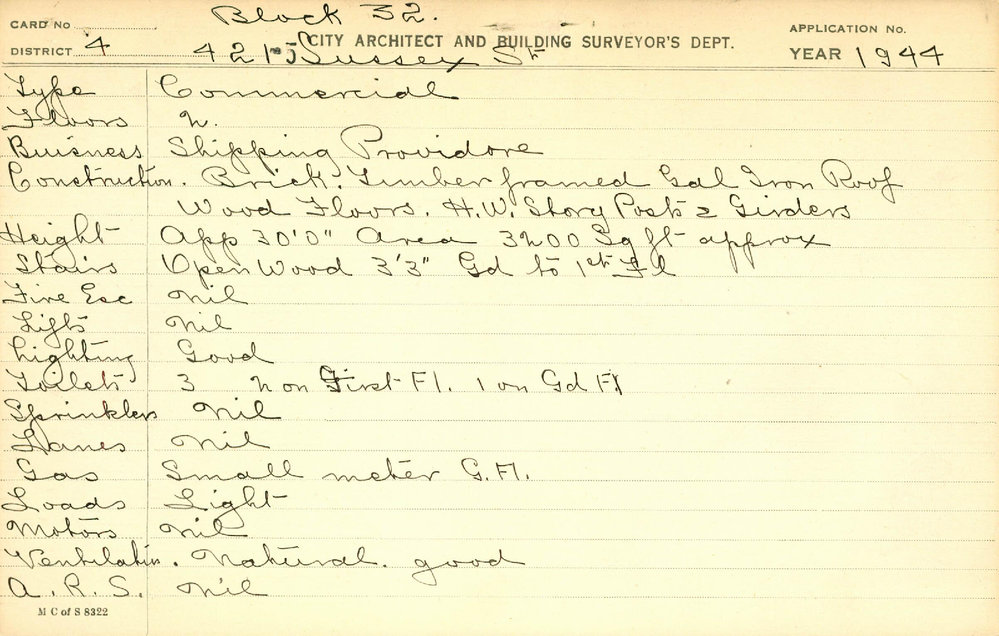 Block 32.
CARD No
CITY ARCHITECT AND BUILDING SURVEYOR'S DEPT.
APPLICATION No.
DISTRICT 4
421-5 Sussex St
YEAR 1944
Type Commercial
Floors 2.
Buisness Shipping Providore
Construction. Brick. Timber framed Gal Iron Roof
Wood Floors. H.W. Story Posts & Girders
Height App 30'0" Area 3200 Sq ft approx
Stairs Open Wood 3'3" Gd to 1st Fl
Fire Esc Nil
Lifts Nil
Lighting Good
Toilets 3 2 on First Fl. 1 on Gd Fl
Sprinklers Nil
Lanes Nil
Gas Small meter G.Fl.
Loads Light
Motors Nil
Ventilatin. Natural. good
A.R.S. Nil
M C of S 8322